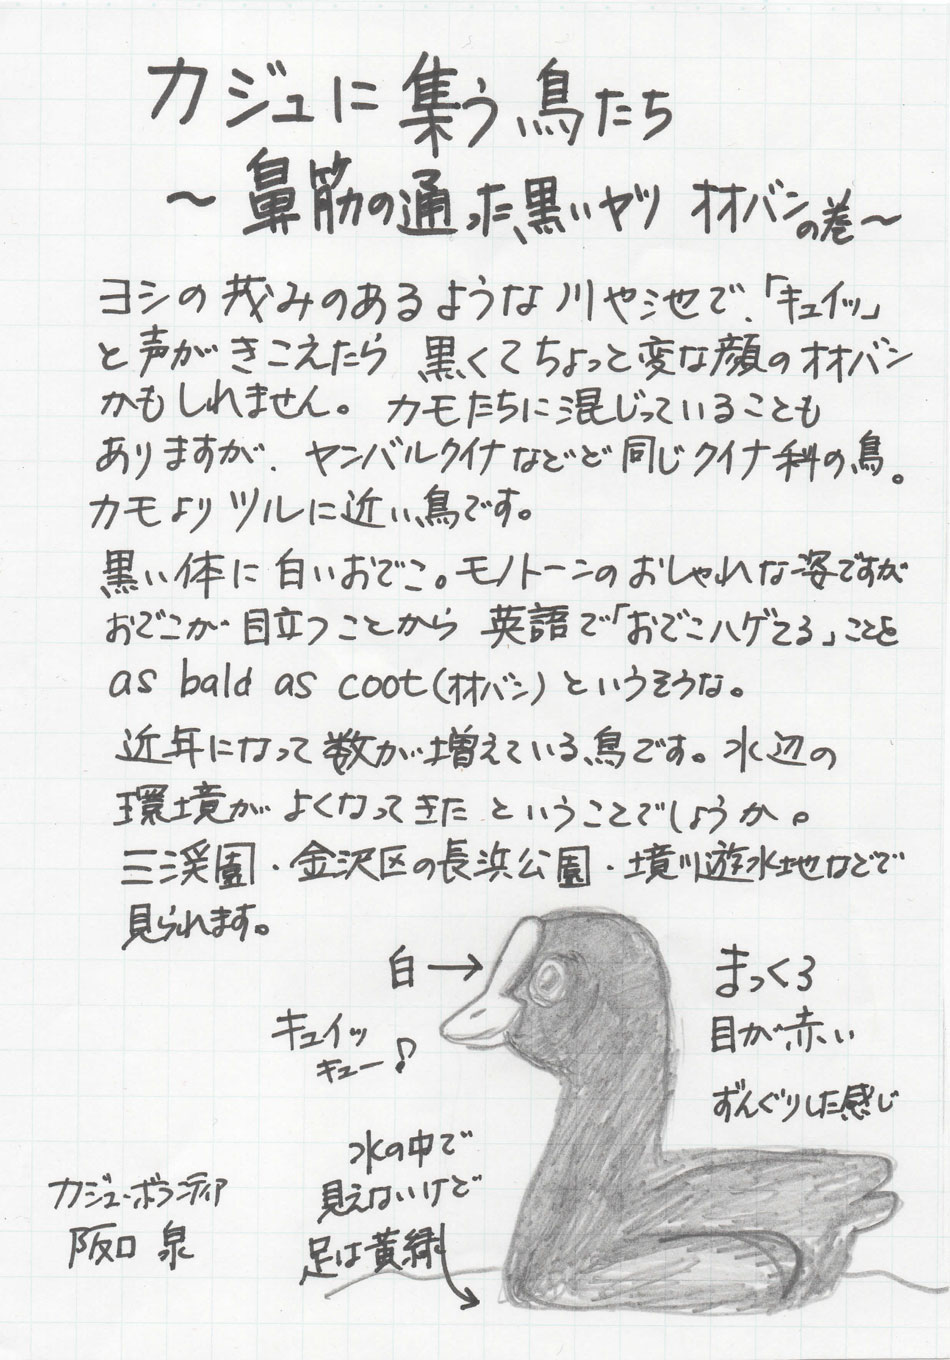 カジュに集う鳥たち
～鼻筋の通った黒いヤツ オオバンの巻～
ヨシの茂みのあるような川や池で、「キュイッ」
と声がきこえたら 黒くてちょっと変な顔のオオバン
かもしれません。 カモたちに混じっていることも
ありますが、ヤンバルクイナなどと同じクイナ科の鳥。
カモよりツルに近い鳥です。
黒い体に白いおでこ。モノトーンのおしゃれな姿ですが
おでこが目立つことから 英語で「おでこハゲてる」ことを
as bald as coot(オオバン)というそうな。
近年になって数が増えている鳥です。水辺の
環境がよくなってきたということでしょうか。
三渓園・金沢区の長浜公園・境川遊水地などで
見られます。
白→
まっくろ
目が赤い
ずんぐりした感じ
キュイッ
キュー♪
水の中で
見えないけど
足は黄緑
カジュ・ボランティア
阪口 泉